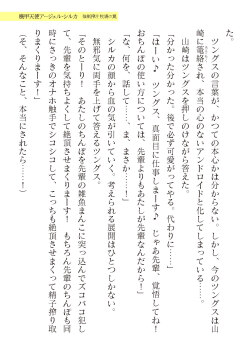 機甲天使アージェル・シルカ
た。
　ツングスの言葉が、かつての本心は分からない。しかし、今のツングスは山
崎に籠絡され、本当の心のないアンドロイドと化してしまっている……。
　山崎はツングスを押しのけながら答えた。
「分かった分かった。後で必ず可愛がってやる。代わりに……」
「はーい♪　ツングス、真面目に仕事しまーす♪　じゃあ先輩、覚悟してね！
おちんぽの使い方については、先輩よりもあたしが先輩なんだから！」
「な、何を、話して……ま、まさか……！」
　シルカの顔から血の気が引いていく。考えられる展開はひとつしかない。
　無邪気に両手を上げて答えるツングス。
「そのとーり！　あたしのちんぽ、先輩の雑魚まんこに突っ込んでズコバコ犯し
て、先輩を気持ちよくして絶頂させまくりまーす！　もちろん先輩のちんぽも同
時にさっきのオナホ触手でシコシコして、こっちも絶頂させまくって精子搾り取
りまくりまーす！」
（そ、そんなこと、本当にされたら……！）